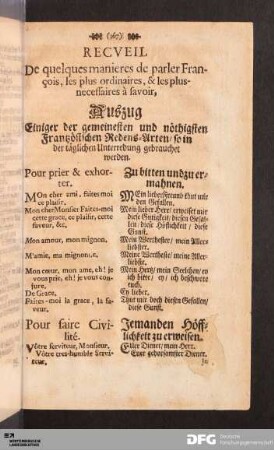 (367)
RECVEIL
De quelques manieres de parler Fran-
çois, les plus ordinaires, & les plus-
necessaires à savoir,
Auszug
Einiger der gemeinesten und nöthigsten
Frantzösischen Redens-Arten/ so in
der täglichen Unterredung gebrauchet
werden.
Pour prier & exhor-
ter.
MOn cher ami, faites-moi
ce plaisir.
Mon cher Monsier Faites-moi
cette grace, ce plaisir, cette
faveur, &c.
Mon amour, mon mignon.
M'amie, ma mignonne.
Mon cœur, mon ame, eh! je
vous prie, eh! je vous con-
jure.
De Grace.
Faites-moi la grace, la fa-
veur.
Pour faire Civi-
lité.
VÔtre serviteur, Monsieur,
Vôtre tres-humble Servi-
teur,
Zu bitten und zu er-
mahnen.
MEin lieber Freund thut mir
den Gefallen.
Mein lieber Herr/ erweiset mir
diese Gütigkeit/ diesen Gefal-
len/ diese Höflichkeit/ diese
Gunst.
Mein Werthester/ mein Aller-
liebster.
Meine Wertheste/ meine Aller-
liebste.
Mein Hertz/ mein Seelchen/ ey
ich bitte/ ey/ ich beschwere
euch.
Ey lieber.
Thut mir doch diesen Gefallen/
diese Gunst.
Jemanden Höff-
lichkeit zu erweisen.
EUer Diener/ mein Herr.
Euer gehorsamster Diener.
DFG Deutsche
Forschungsgemeinschaft